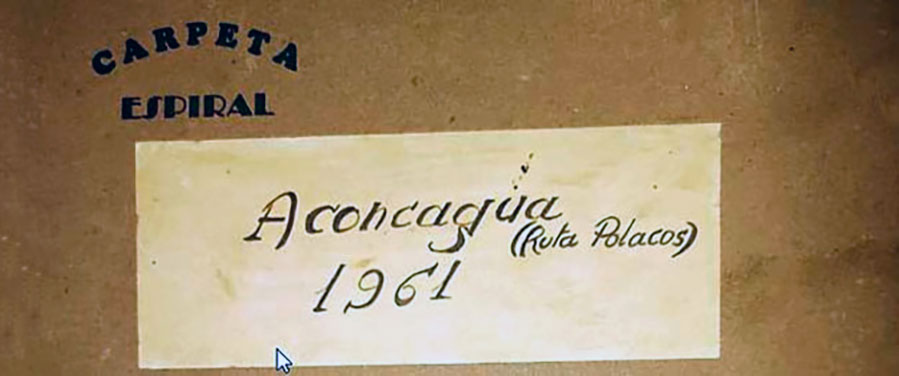 CARPETA
ESPIRAL
Aconcagüa
(Ruta Polacos)
1961